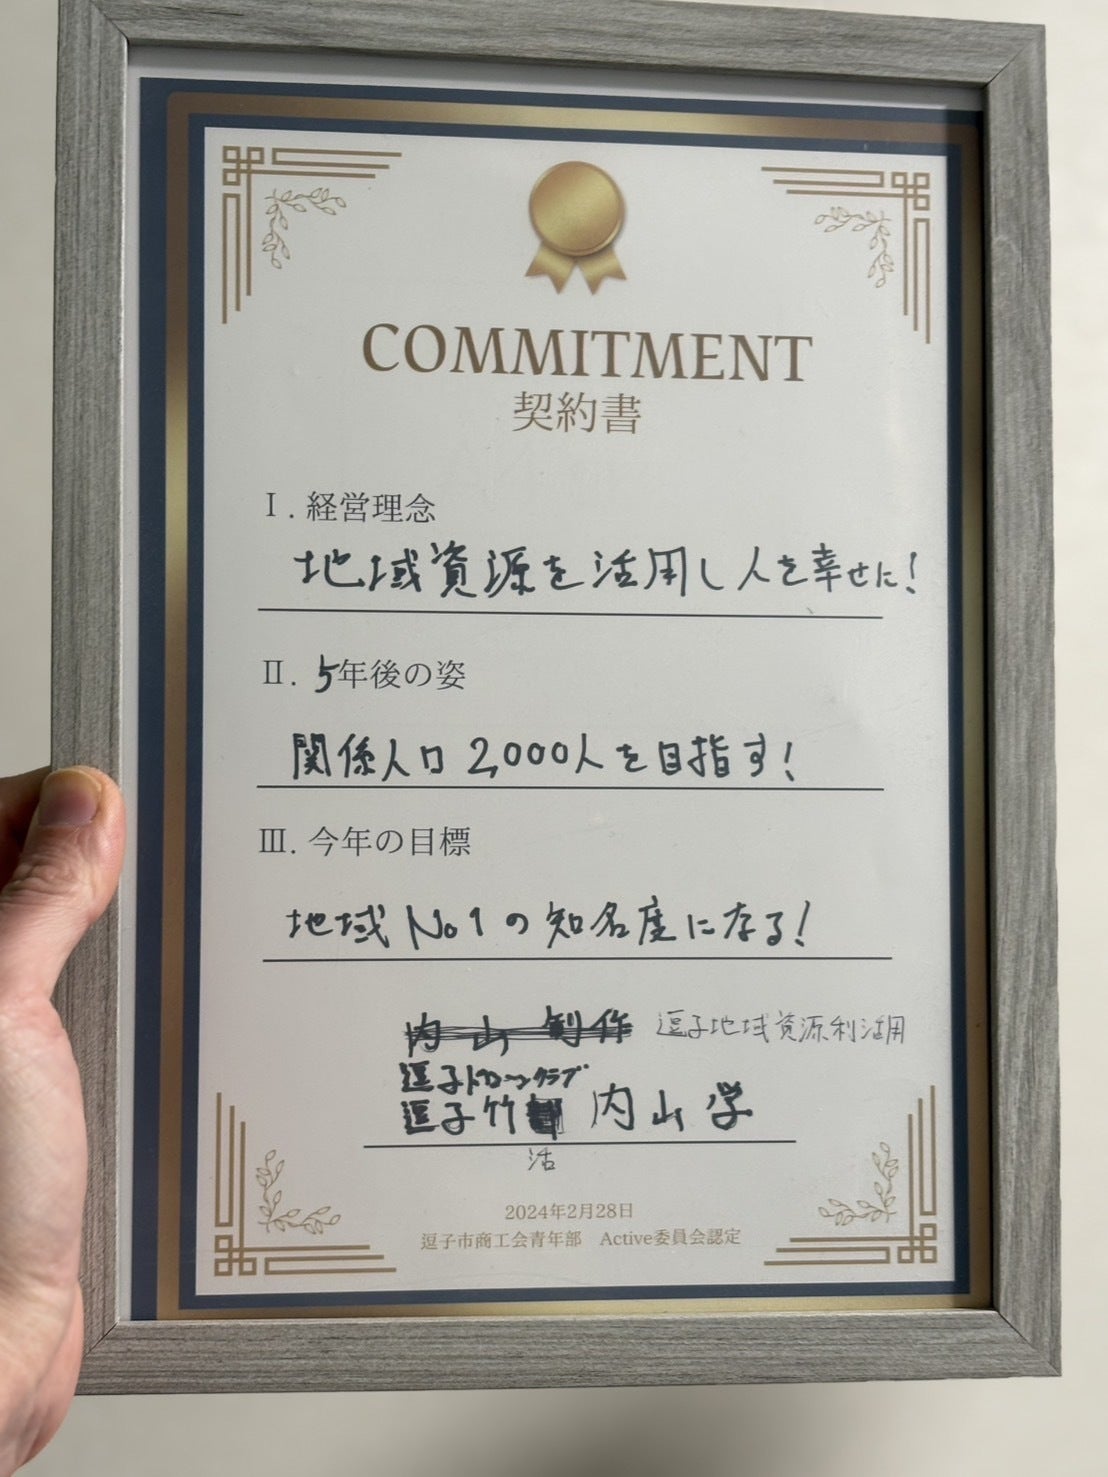 COMMITMENT
契約書
Ⅰ. 経営理念
地域資源を活用し人を幸せに!
Ⅱ. 5年後の姿
関係人口 2,000人を目指す!
Ⅲ. 今年の目標
地域No1の知名度になる!
内山創作 逗子地域資源利活用
逗子ドローンクラブ
逗子竹 内山 学
活
2024年2月28日
逗子市商工会青年部 Active委員会認定